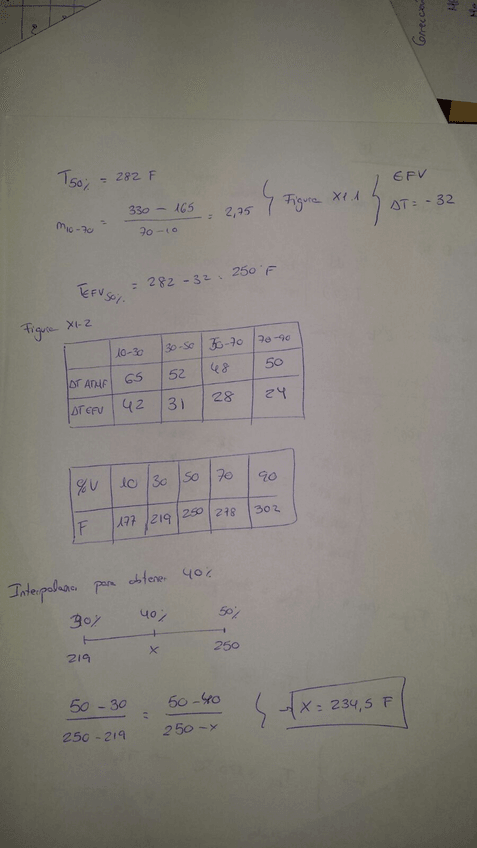 T50% = 282 F
m10-70 = 330 - 165 / 70-10 = 2,75 } Figura XI.1 { EFV ΔT = -32
TEFV50% = 282 - 32 = 250°F
Figura XI-2
10-30 30-50 50-70 70-90
ΔT ATMF 65 52 48 50
ΔT EFV 42 31 28 24
%V 10 30 50 70 90
F 177 219 250 278 302
para obtener 40%
30% 40% 50%
219 x 250
50 - 30 / 250 - 219 = 50 - 40 / 250 - x } → X = 234,5 F